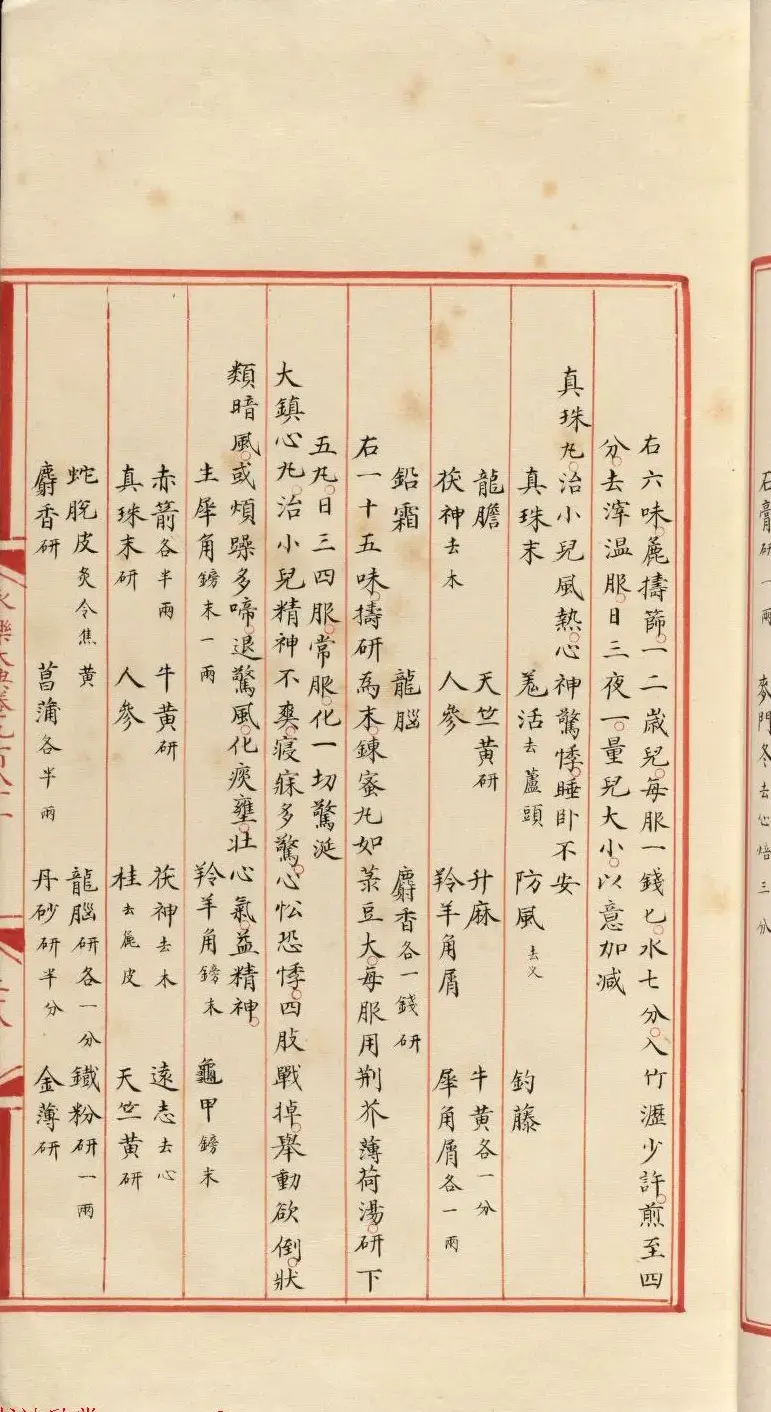 石膏研一兩 麥門冬去心焙三分
右六味。麄擣篩。一二歲兒。每服一錢匕。水七分。入竹瀝少許。煎至四
分。去滓溫服。日三夜一。量兒大小。以意加减
真珠丸。治小兒風熱。心神驚悸。睡卧不安
真珠末 羗活去蘆頭 防風去义 釣藤
龍膽 天竺黃研 升麻 牛黃各一分
茯神去木 人參 羚羊角屑 犀角屑各一兩
鉛霜 龍腦 麝香各一錢研
右一十五味。擣研爲末。鍊蜜丸如菉豆大。每服用荆芥薄荷湯。研下
五丸。日三四服。常服。化一切驚涎
大鎮心丸。治小兒精神不爽。寢寐多驚。心忪恐悸。四肢戰掉。舉動欲倒。狀
類暗風。或煩躁多啼。退驚風。化痰壅。壯心氣。益精神。
生犀角鎊末一兩 羚羊角鎊末 龜甲鎊末
赤箭各半兩 牛黃研 茯神去木 遠志去心
真珠末研 人參 桂去麄皮 天竺黃研
蛇脫皮炙令焦黃 龍腦研各一分 鐵粉研一兩
麝香研 菖蒲各半兩 丹砂研半分 金薄研